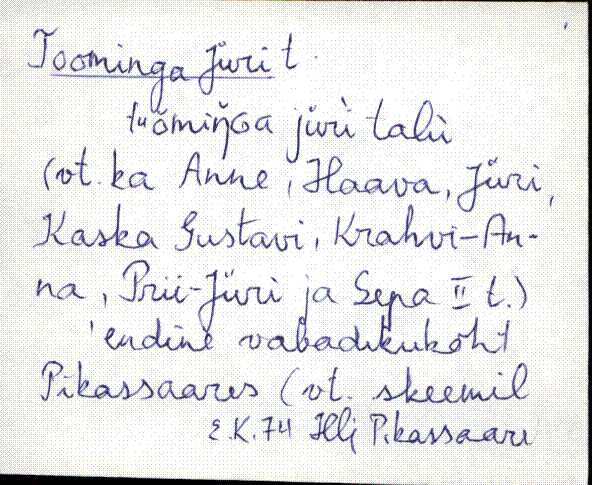 Toominga Jüri t.
tuomiŋGa jüri talu
(vt. ka Anne, Haava, Jüri,
Kaska Gustavi, Krahvi-An-
na, Prii-Jüri ja Sepa II t.)
'endine vabadikukoht
Pikassaares (vt. skeemil
E.K.74 Hlj Pikassaare